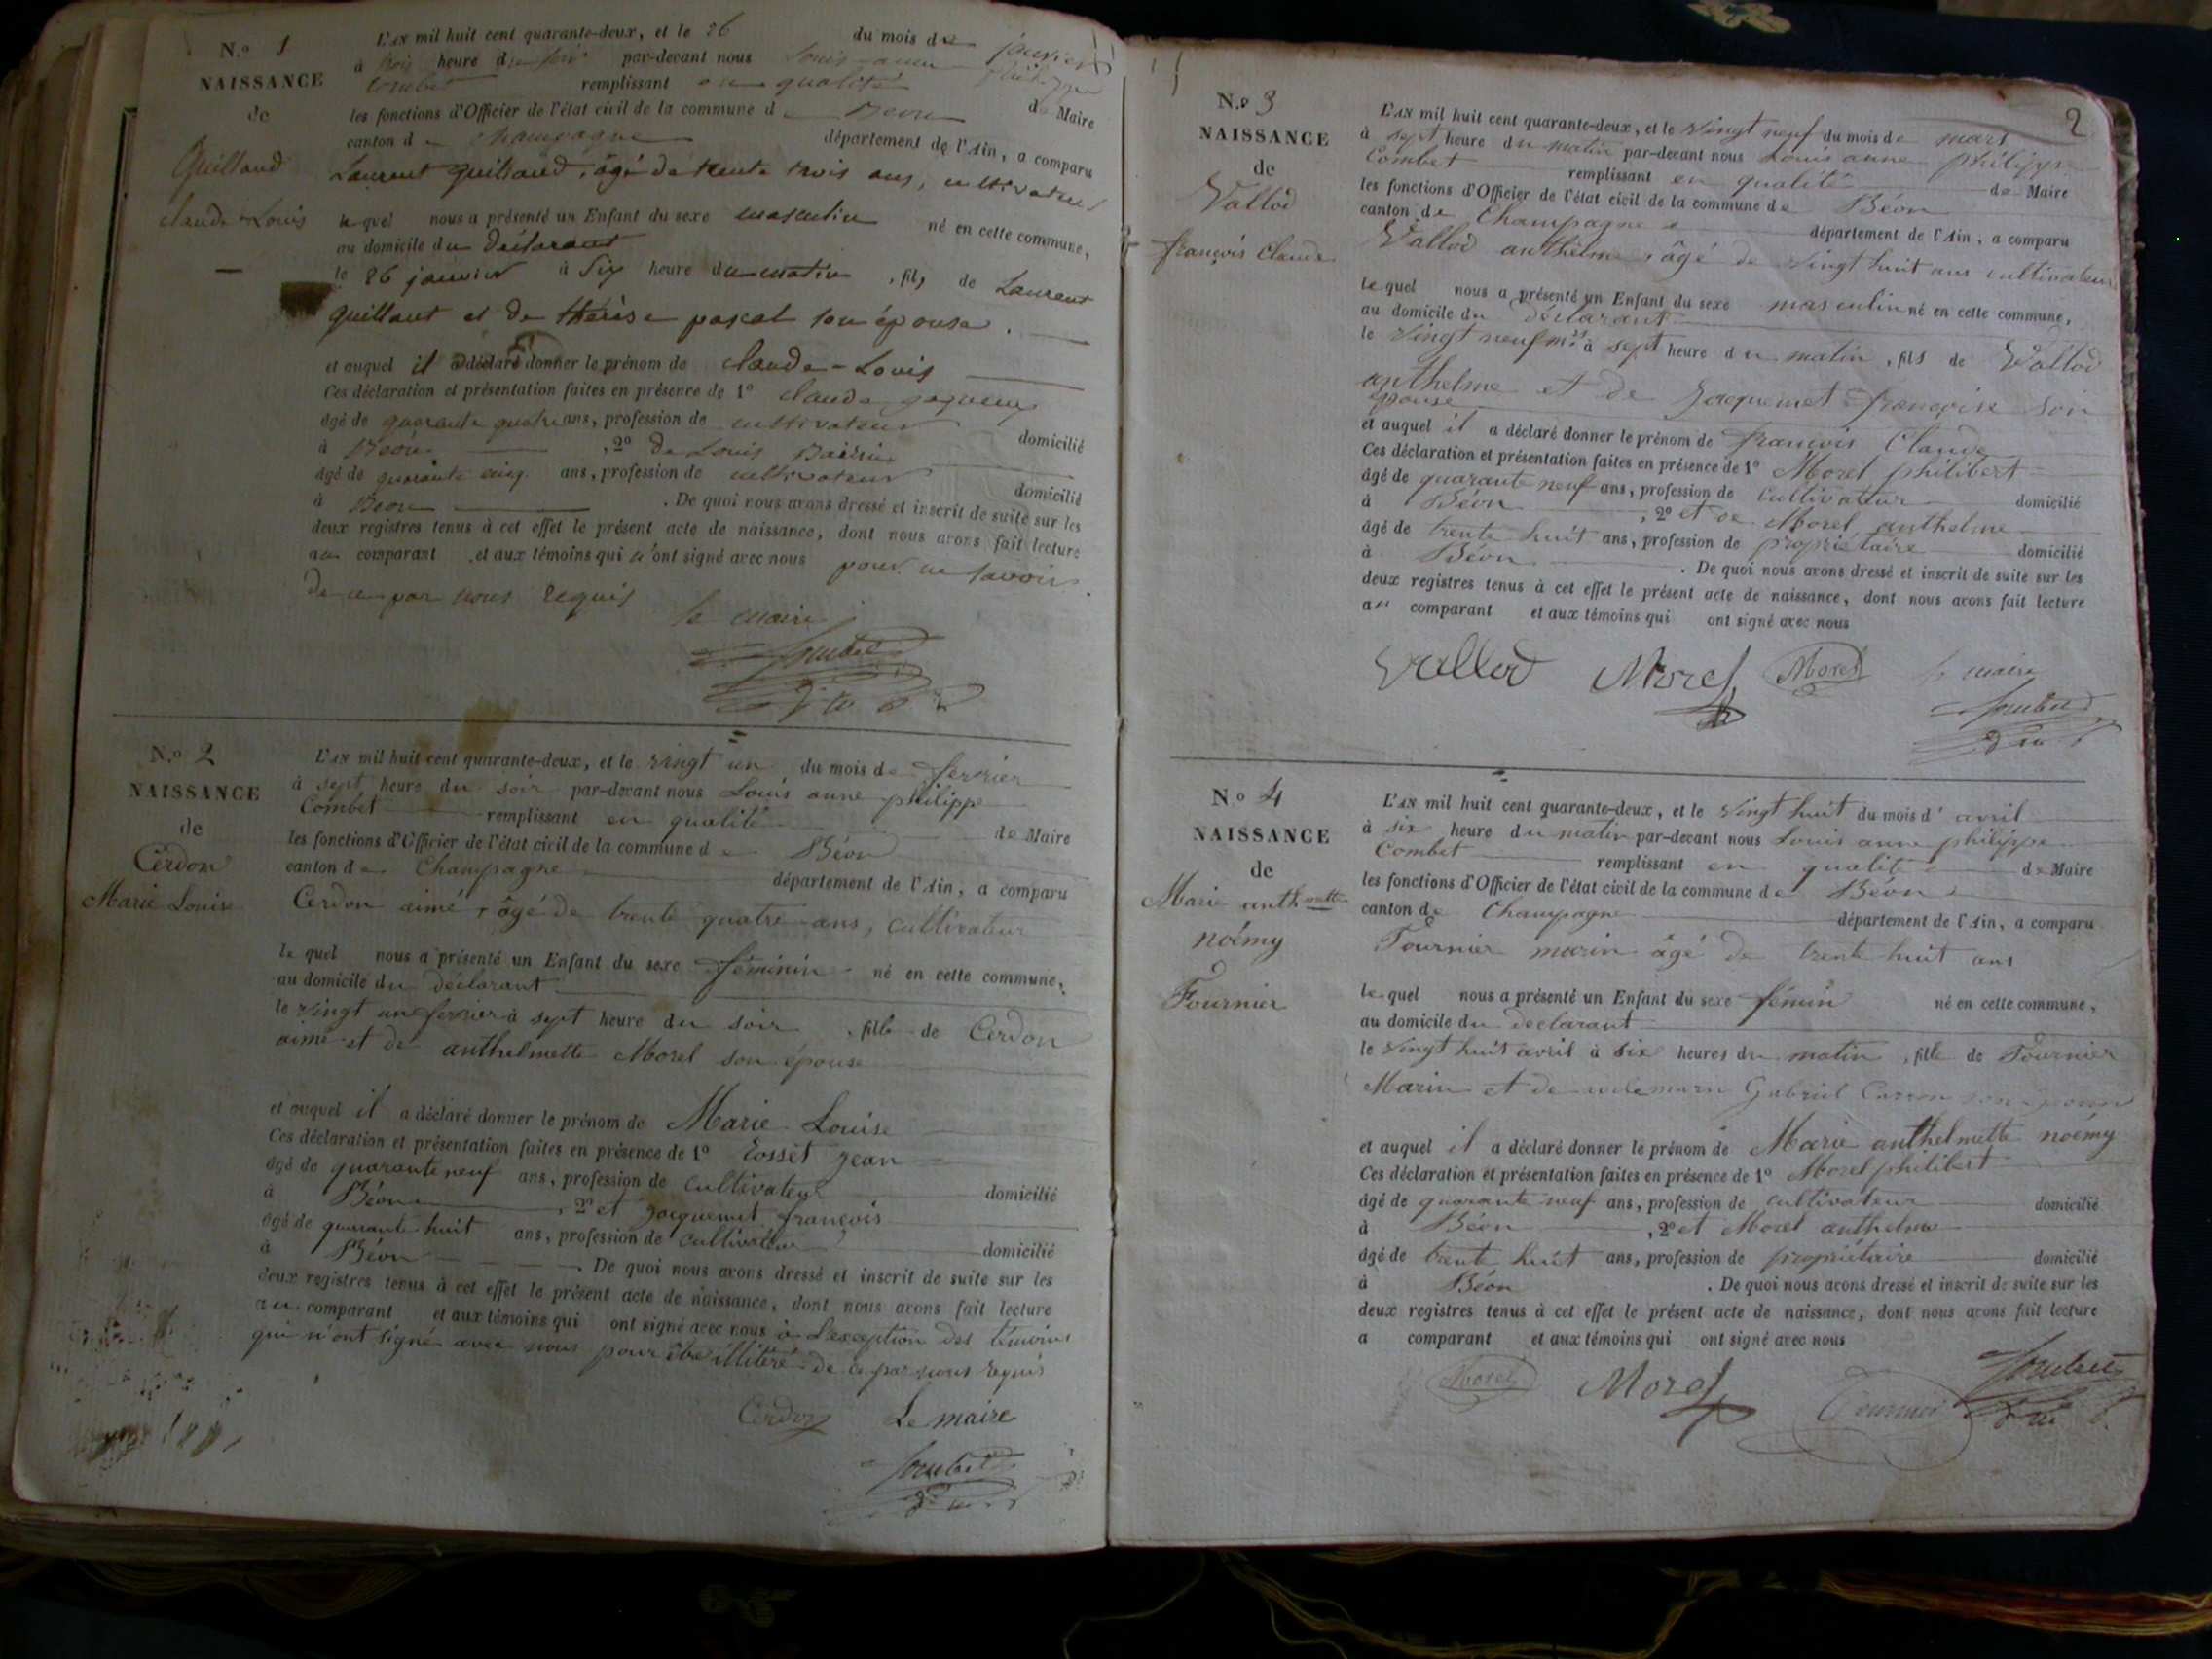 N.o 1
NAISSANCE
de
Quilland
claude-Louis
L'AN mil huit cent quarante-deux, et le 26 du mois de janvier
à trois heure du soir par-devant nous Louis anne philippe
Combet remplissant en qualité de Maire
les fonctions d'Officier de l'état civil de la commune de Beon
canton de Champagne département de l'Ain, a comparu
Laurent quilland, âgé de trente trois ans, cultivateur
lequel nous a présenté un Enfant du sexe masculin né en cette commune,
au domicile du déclarant
le 26 janvier à Six heure du matin, fils de Laurent
quillant et de thérèse pascal son épouse.
et auquel il a déclaré donner le prénom de claude-Louis
Ces déclaration et présentation faites en présence de 1o claude
âgé de quarante quatre ans, profession de cultivateur domicilié
à Béon, 2o de Louis
âgé de quarante cinq ans, profession de cultivateur domicilié
à Beon. De quoi nous avons dressé et inscrit de suite sur les
deux registres tenus à cet effet le présent acte de naissance, dont nous avons fait lecture
au comparant et aux témoins qui n'ont signé avec nous pour ne savoir
de ce par nous requis
le maire
Combet
N.o 2
NAISSANCE
de
Cerdon
Marie Louise
L'AN mil huit cent quarante-deux, et le vingt un du mois de fevrier
à sept heure du soir par-devant nous Louis anne philippe
Combet remplissant en qualité de Maire
les fonctions d'Officier de l'état civil de la commune de Béon
canton de Champagne département de l'Ain, a comparu
Cerdon aimé, âgé de trente quatre ans, cultivateur
le quel nous a présenté un Enfant du sexe féminin né en cette commune,
au domicile du déclarant
le vingt un fevrier à sept heure du soir, fille de Cerdon
aimé et de anthelmette Morel son épouse
et auquel il a déclaré donner le prénom de Marie Louise
Ces déclaration et présentation faites en présence de 1o Cosset jean
âgé de quarante neuf ans, profession de cultivateur domicilié
à Béon, 2o et jacquemet françois
âgé de quarante huit ans, profession de cultivateur domicilié
à Béon. De quoi nous avons dressé et inscrit de suite sur les
deux registres tenus à cet effet le présent acte de naissance, dont nous avons fait lecture
au comparant et aux témoins qui ont signé avec nous à l'exception des témoins
qui n'ont signé avec nous pour être illitéré de ce par nous requis
Cerdon Le maire
Combet
2
N.o 3
NAISSANCE
de
Vallod
françois Claude
L'AN mil huit cent quarante-deux, et le vingt neuf du mois de mars
à sept heure du matin par-devant nous Louis anne philippe
Combet remplissant en qualité de Maire
les fonctions d'Officier de l'état civil de la commune de Béon
canton de Champagne département de l'Ain, a comparu
Vallod anthelme, âgé de vingt huit ans cultivateur
lequel nous a présenté un Enfant du sexe masculin né en cette commune,
au domicile du déclarant
le vingt neuf m.rs à sept heure du matin, fils de Vallod
anthelme et de jacquemet françoise son
épouse
et auquel il a déclaré donner le prénom de françois Claude
Ces déclaration et présentation faites en présence de 1o Morel philibert
âgé de quarante neuf ans, profession de cultivateur domicilié
à Béon, 2o et de Morel anthelme
âgé de trente huit ans, profession de propriétaire domicilié
à Béon. De quoi nous avons dressé et inscrit de suite sur les
deux registres tenus à cet effet le présent acte de naissance, dont nous avons fait lecture
au comparant et aux témoins qui ont signé avec nous
Vallod Morel Morel le maire
Combet
N.o 4
NAISSANCE
de
Marie anthmette
noémy
Fournier
L'AN mil huit cent quarante-deux, et le vingt huit du mois d'avril
à six heure du matin par-devant nous Louis anne philippe
Combet remplissant en qualité de Maire
les fonctions d'Officier de l'état civil de la commune de Béon
canton de Champagne département de l'Ain, a comparu
Fournier marin âgé de trente huit ans
lequel nous a présenté un Enfant du sexe fémin né en cette commune,
au domicile du declarant
le vingt huit avril à six heures du matin, fille de Fournier
Marin et de Gabriel Carron son épouse
et auquel il a déclaré donner le prénom de Marie anthelmette noémy
Ces déclaration et présentation faites en présence de 1o Morel philibert
âgé de quarante neuf ans, profession de cultivateur domicilié
à Béon, 2o et Morel anthelme
âgé de trente huit ans, profession de propriétaire domicilié
à Béon. De quoi nous avons dressé et inscrit de suite sur les
deux registres tenus à cet effet le présent acte de naissance, dont nous avons fait lecture
a comparant et aux témoins qui ont signé avec nous
Morel Morel Fournier Combet